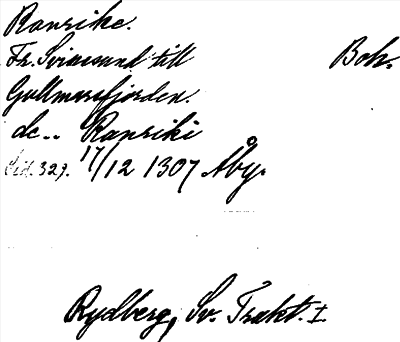 Ranrike.
Fr. Svinesund till Boh.
Gullmarsfjorden.
de.. Ranriki
Sid. 329. 17/12 1307 Åby.
Rydberg, Sv. Trakt. I.